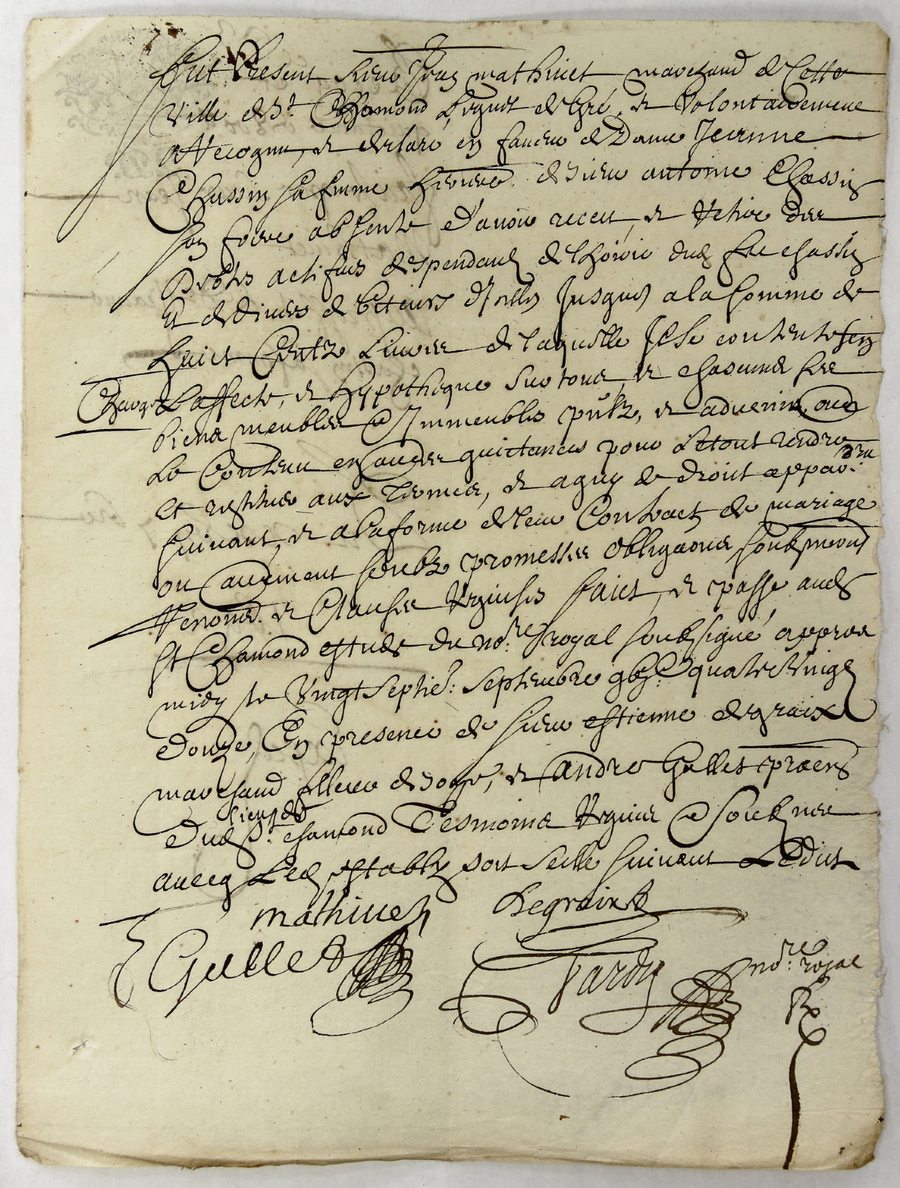 Fut Present sieur Jean mathivet marchand de Cette
Ville de St. Chamond Lequel de gré, & Volontairement
a Recognu, & declaré en faveur de Dame Jeanne
Chassin sa femme heritiere de sieur antoine Chassin
son frere absente d'avoir receu, & retiré des
debtes actifues despendant de l'hoirie dud. feu chassin
Et de divers debiteurs d'icelle Jusques a la somme de
huict Centz Livres de laquelle Il se contente
Charge L'affecte, & hypotheque sur tous, & chascuns ses
biens meubles & Immeubles pntz, & advenir, avec
Le Contenu en sauces quittances pour Le tout rendre
et restituer aux Termes, & a qui de droit appar.dra
suivant, & a la forme de leur Contract de mariage
ou autrement soubz promesses obligaons soubzmions
Renoncé. & Clauses Requises faict, & passé aud.
St Chamond estude du no.re royal soubsigné, apprès
midy le Vingt septie. septembre gbjc. quatre Vingt
douze, En presence de sieur estienne degraix
marchand & andré Gullet praen
dud. St. chamond Tesmoins Requis & soubznés
avecq Led. estably soit seelle suivant L'edict
mathivet Degraix
Gullet Vardy no.re royal